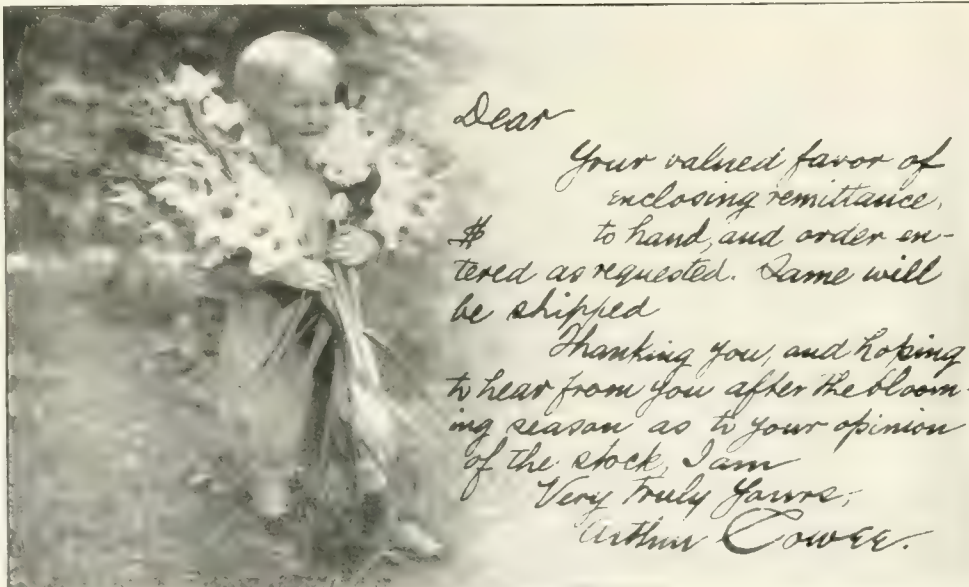 Dear
Your valued favor of
enclosing remittance,
$ to hand, and order en-
tered as requested. Same will
be shipped
Thanking you, and hoping
to hear from you after the bloom-
ing season as to your opinion
of the stock, I am
Very Truly Yours,
Arthur Cowee.